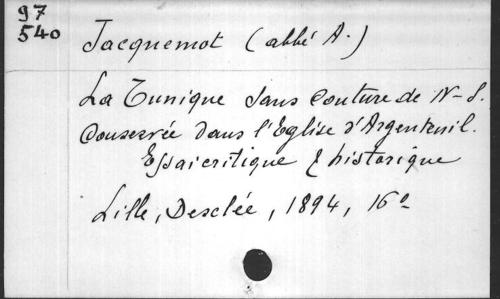 97
540
Jacquemot (abbé A.)
La Tunique sans couture de N-S.
Conservée dans l'Eglise d'Argenteuil.
Essai critique & historique
Lille, Desclée, 1894, 16º